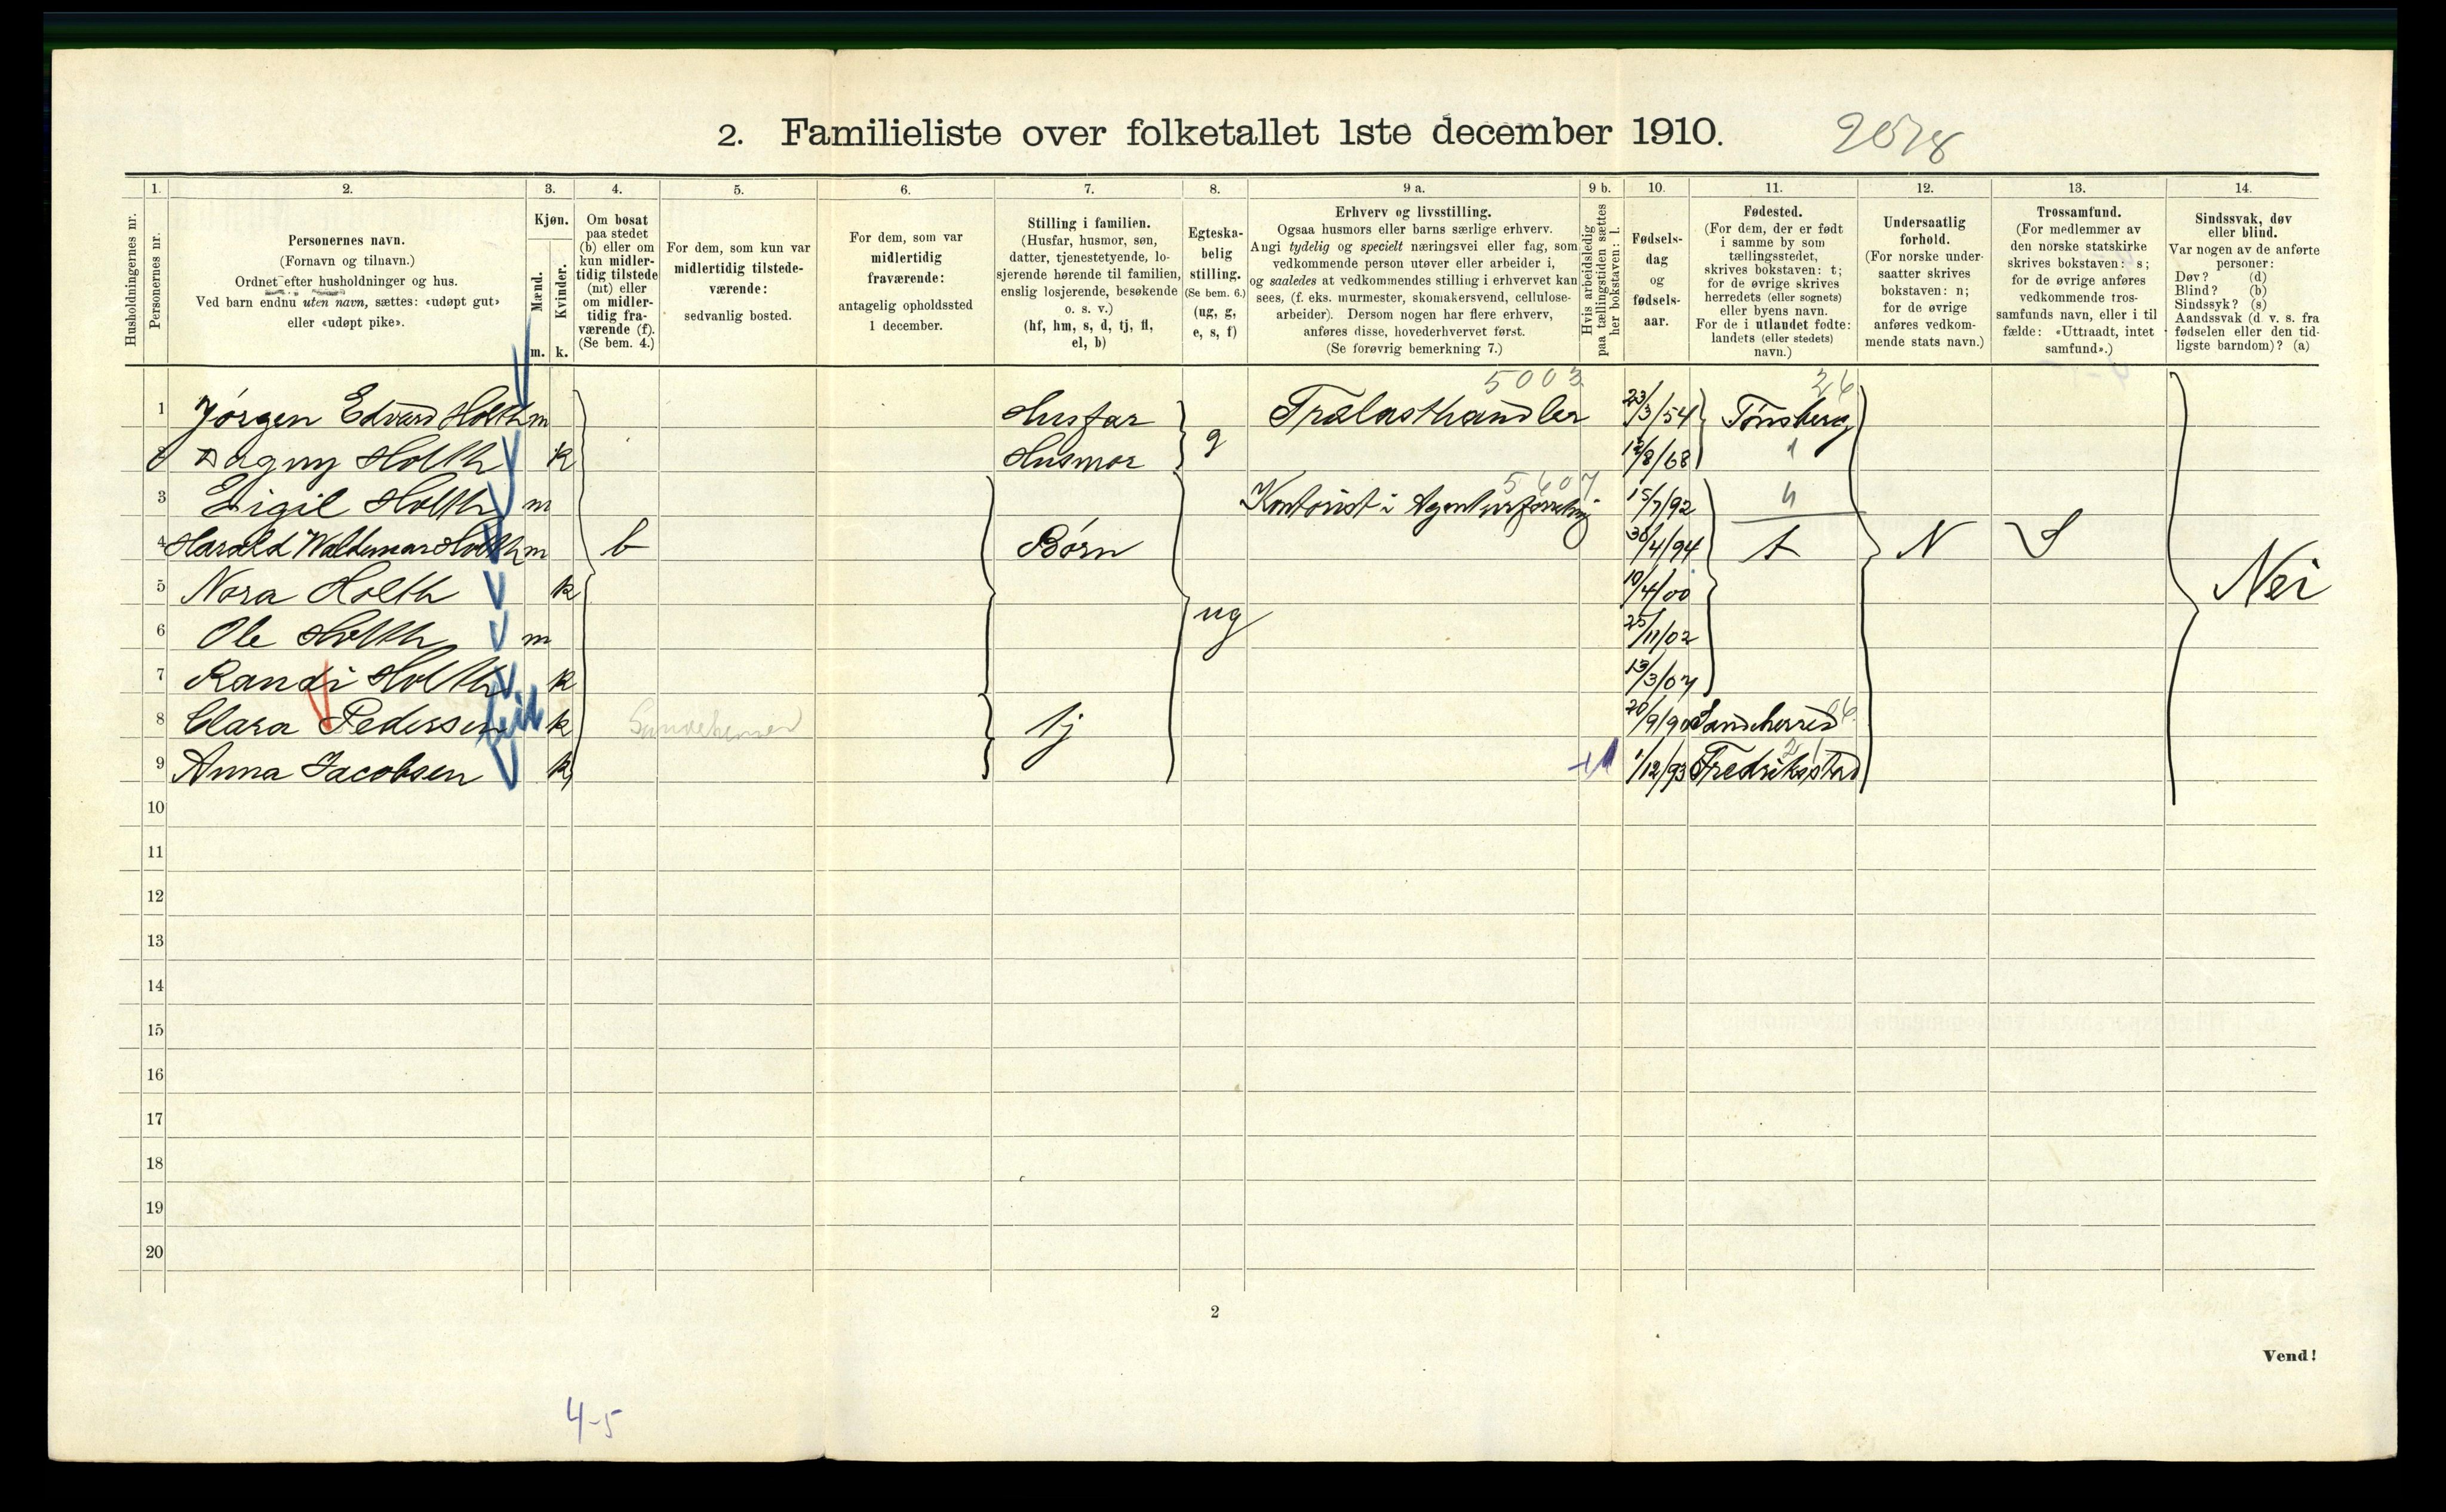 2. Familieliste over folketallet 1ste december 1910.
Husholdningernes nr.
1. Personernes nr.
2. Personernes navn.
(Fornavn og tilnavn.)
Ordnet efter husholdninger og hus.
Ved barn endnu uten navn, sættes: «udøpt gut»
eller «udøpt pike».
3. Kjøn.
Mænd. m.
Kvinder. k.
4. Om bosat
paa stedet
(b) eller om
kun midler-
tidig tilstede
(mt) eller
om midler-
tidig fra-
værende (f).
(Se bem. 4.)
5. For dem, som kun var
midlertidig tilstede-
værende:
sedvanlig bosted.
6. For dem, som var
midlertidig
fraværende:
antagelig opholdssted
1 december.
7. Stilling i familien.
(Husfar, husmor, søn,
datter, tjenestetyende, lo-
sjerende hørende til familien,
enslig losjerende, besøkende
o. s. v.)
(hf, hm, s, d, tj, fl,
el, b)
8. Egteska-
belig
stilling.
(Se bem. 6.)
(ug, g,
e, s, f)
9 a. Erhverv og livsstilling.
Ogsaa husmors eller barns særlige erhverv.
Angi tydelig og specielt næringsvei eller fag, som
vedkommende person utøver eller arbeider i,
og saaledes at vedkommendes stilling i erhvervet kan
sees, (f. eks. murmester, skomakersvend, cellulose-
arbeider). Dersom nogen har flere erhverv,
anføres disse, hovederhvervet først.
(Se forøvrig bemerkning 7.)
9 b. Hvis arbeidsledig
paa tællingstiden sættes
her bokstaven: l.
10. Fødsels-
dag
og
fødsels-
aar.
11. Fødested.
(For dem, der er født
i samme by som
tællingsstedet,
skrives bokstaven: t;
for de øvrige skrives
herredets (eller sognets)
eller byens navn.
For de i utlandet fødte:
landets (eller stedets)
navn.)
12. Undersaatlig
forhold.
(For norske under-
saatter skrives
bokstaven: n;
for de øvrige
anføres vedkom-
mende stats navn.)
13. Trossamfund.
(For medlemmer av
den norske statskirke
skrives bokstaven: s;
for de øvrige anføres
vedkommende tros-
samfunds navn, eller i til
fælde: «Uttraadt, intet
samfund».)
14. Sindssvak, døv
eller blind.
Var nogen av de anførte
personer:
Døv? (d)
Blind? (b)
Sindssyk? (s)
Aandssvak (d. v. s. fra
fødselen eller den tid-
ligste barndom)? (a)
5003 26
1 Jørgen Edvard Holth m Husfar Trælasthandler 23/3/54 Tønsberg
2 Dagny Holth k Husmor g 12/8/68
5607
3 Eigil Holth m Kontorist i Agenturforretning 15/7/92
4 Harald Waldemar Holth m b Børn 30/4/94 t N S
5 Nora Holth k 10/4/00 Nei
6 Ole Holth m ug 25/11/02
7 Randi Holth k 13/3/07
8 Clara Pedersen k tj 20/9/90 Sandeherred
9 Anna Jacobsen k 1/12/93 Fredrikstad
10
11
12
13
14
15
16
17
18
19
20
2
Vend!
4-5